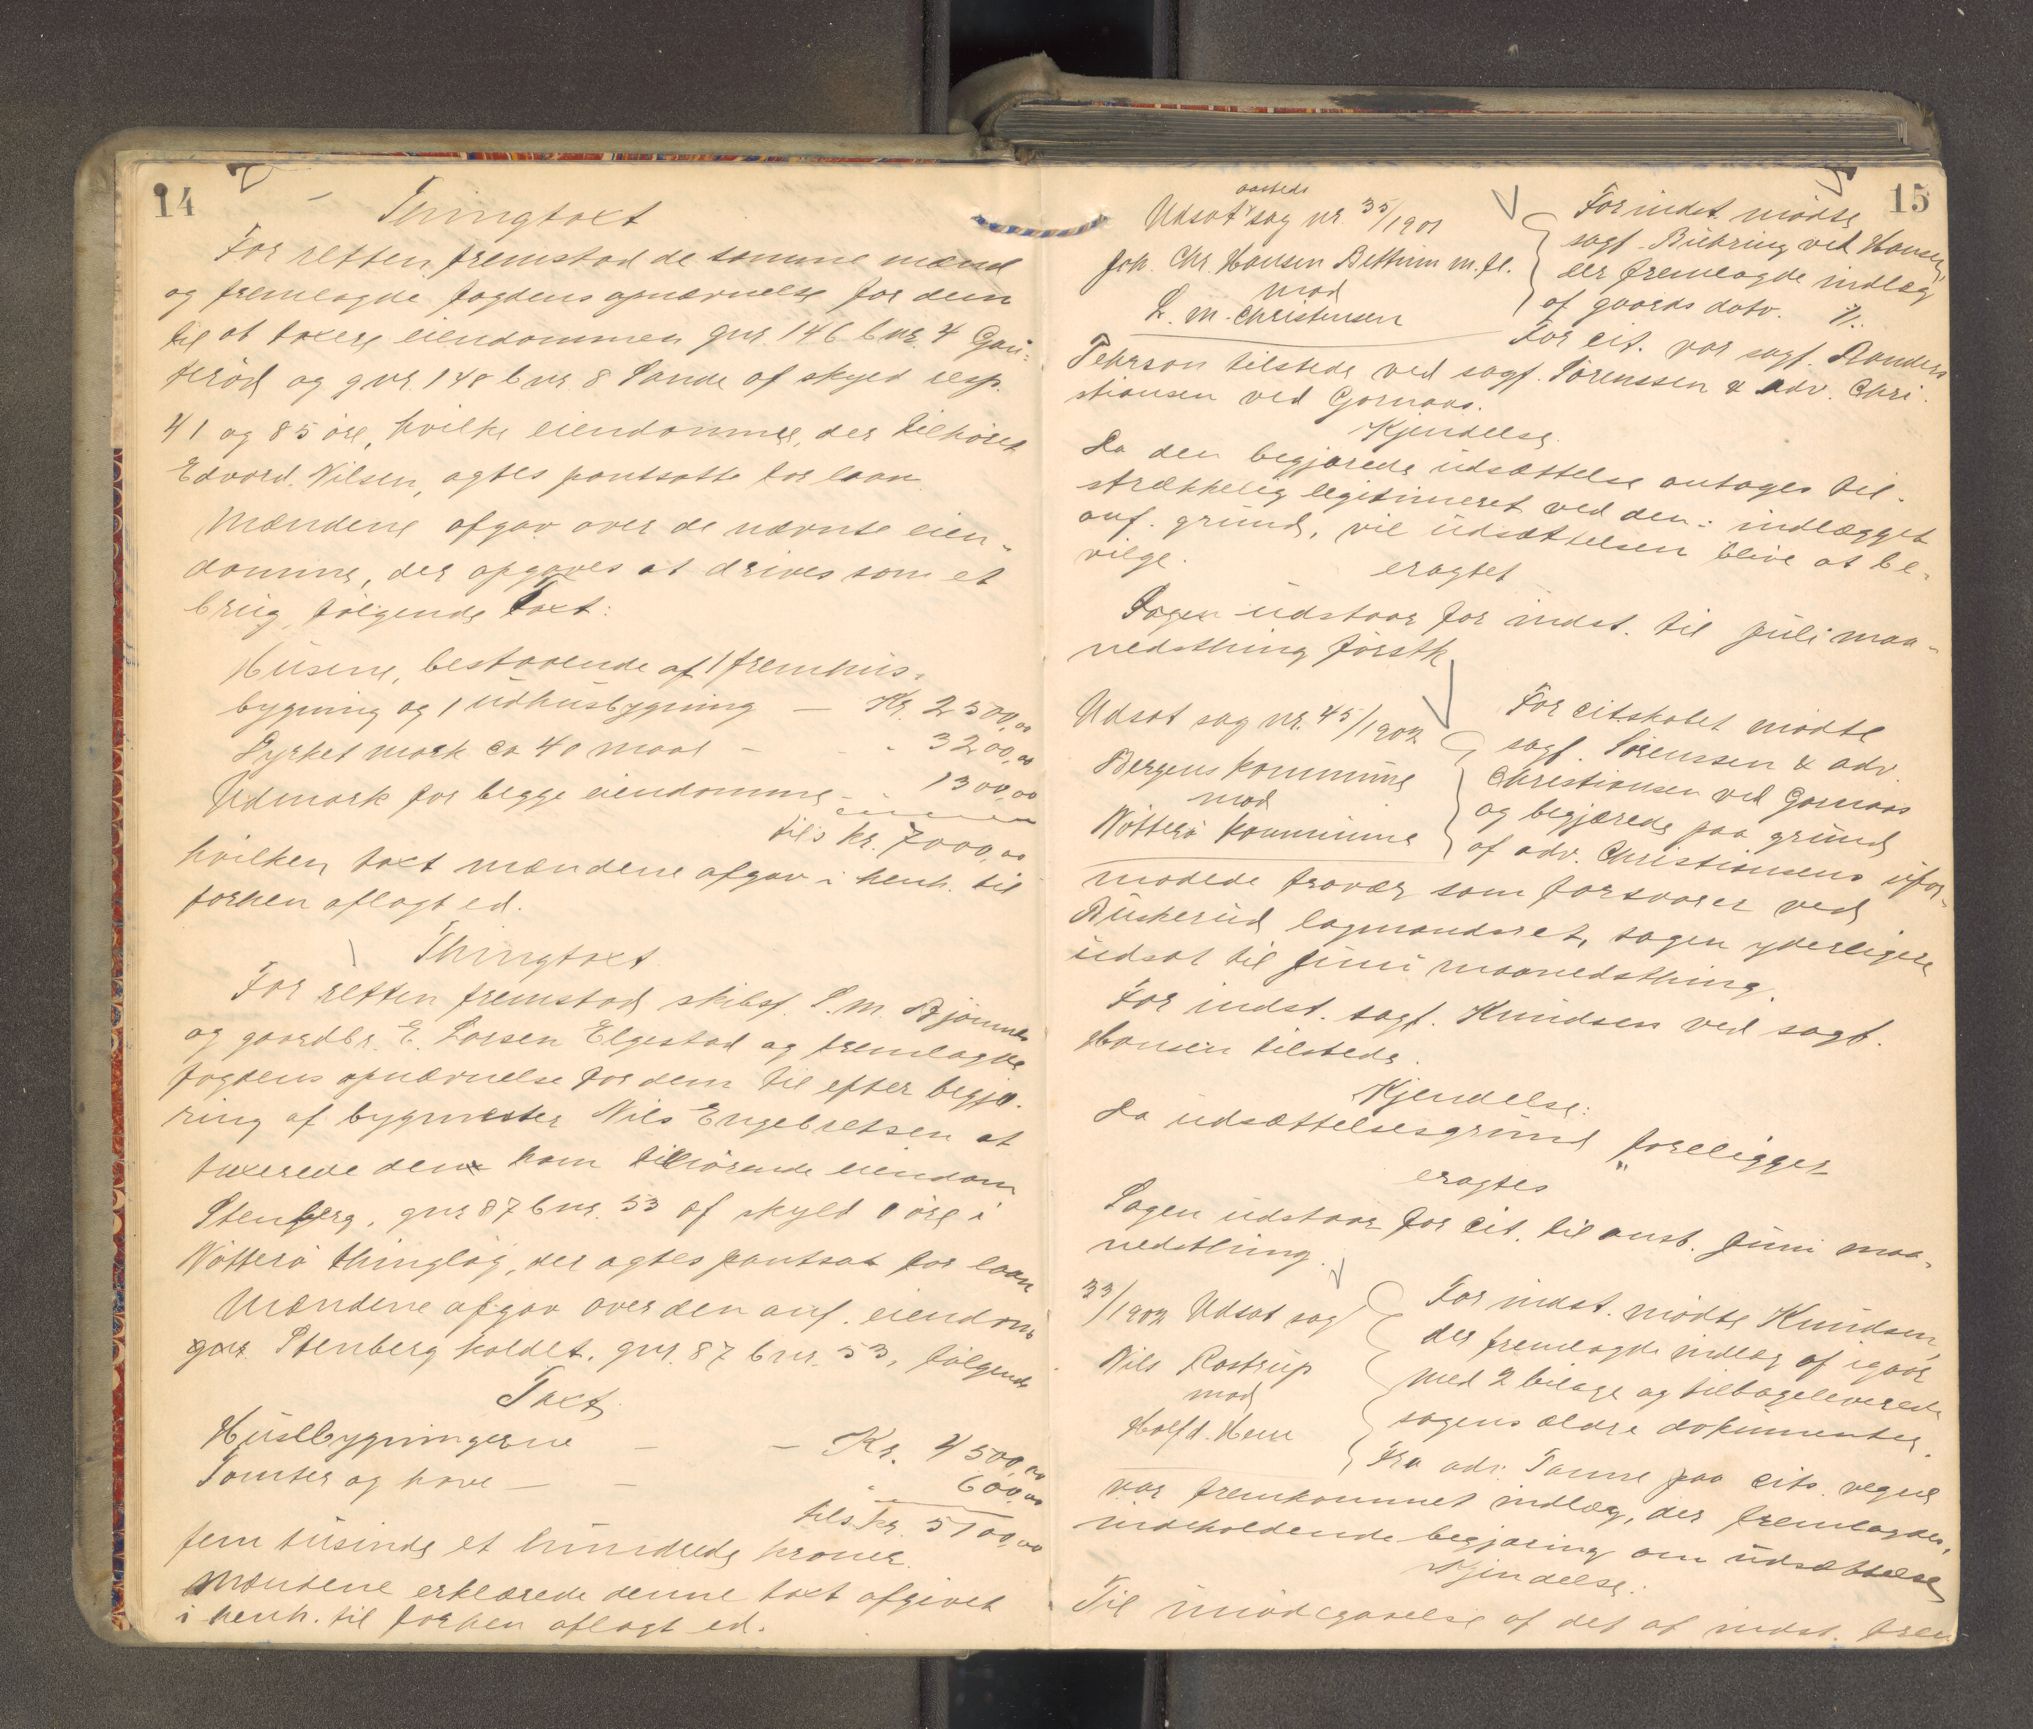 14
Thingtaxt
For retten fremstod de samme mænd
og fremlagde fogdens opnævnelse for dem
til at taxere eiendommen gnr. 146 bnr. 4 Gou-
terød og gnr. 148 bnr. 8 Sande af skyld resp.
41 og 85 øre, hvilke eiendomme, der tilhører
Edvard Nilsen, agtes pantsatte for laan.
Mændene afgav over de nævnte eien-
domme, der opgaves at drives som et
brug, følgende Taxt:
Husene, bestaaende af 1 fremhus-
bygning og 1 udhusbygning — Kr. 2500,00
Dyrket mark ca 40 maal — " 3200,00
Udmark for begge eiendomme - " 1300,00
tils kr. 7000,00
hvilken taxt mændene afgav i henh. til
forhen aflagt ed.
Thingtaxt
For retten fremstod skibsf. S. M. Bjønnes
og gaardbr. E. Larsen Elgestad og fremlagde
fogdens opnævnelse for dem til efter begjæ-
ring af bygmester Nils Engebretsen at
taxerede den ham tilhørende eiendom
Stenberg, gnr 87 bnr. 53 af skyld 1 øre i
Nøtterø thinglag, der agtes pantsat for laan
Mændene afgav over den anf. eiendom
Stenberg kaldet, gnr. 87 bnr. 53, følgende
Taxt
Husebygningerne — — Kr. 4500,00
Tomter og have — — " 600,00
tils kr. 5100,00
fem tusinde et hundrede kroner.
Mændene erklærede denne taxt afgivet
i henh. til forhen aflagt ed.
15
aasteds
Udsat sag nr. 35/1901
Joh. Chr. Hansen Bettum m. fl.
mod
L. M. Christensen
For indst. mødte
sagf. Bühring ved Hansen,
der fremlagde indlæg
af gaards dato. %.
For cit. var sagf. Anders
Pehrson tilstede ved sagf. Sørenssen & adv. Chri-
stiansen ved Gornaas.
Kjendelse.
Da den begjærede udsættelse antages til-
strækkelig legitimeret ved den i indlægget
anf. grund, vil udsættelsen blive at be-
vilge.
eragtet
Sagen udstaar for indst. til juli maa-
nedsthing førstk
Udsat sag nr. 45/1902
Bergens kommune
mod
Nøtterø kommune
For citskabet mødte
sagf. Sørenssen & adv.
Christiansen ved Gornaas
og begjærede paa grund
af adv. Christiansens ufor-
modede fravær som forsvarer ved
Buskerud lagmandsret, sagen yderligere
udsat til juni maanedsthing.
For indst. sagf. Knudsen ved sagf.
Hansen tilstede.
Kjendelse:
Da udsættelsesgrund foreligger
eragtes
Sagen udstaar for cit. til anst. juni maa-
nedsthing.
33/1902 Udsat sag
Nils Rostrup
mod
Halfd. Hem
For indst. mødte Knudsen,
der fremlagde indlæg af igaar
med 2 bilage og tilbageleverede
sagens ældre dokumenter.
Fra adv. Tanne paa cits. vegne
var fremkommet indlæg, der fremlagdes,
indeholdende begjæring om udsættelse
Kjendelse:
Til imødegaaelse af det af indst. frem